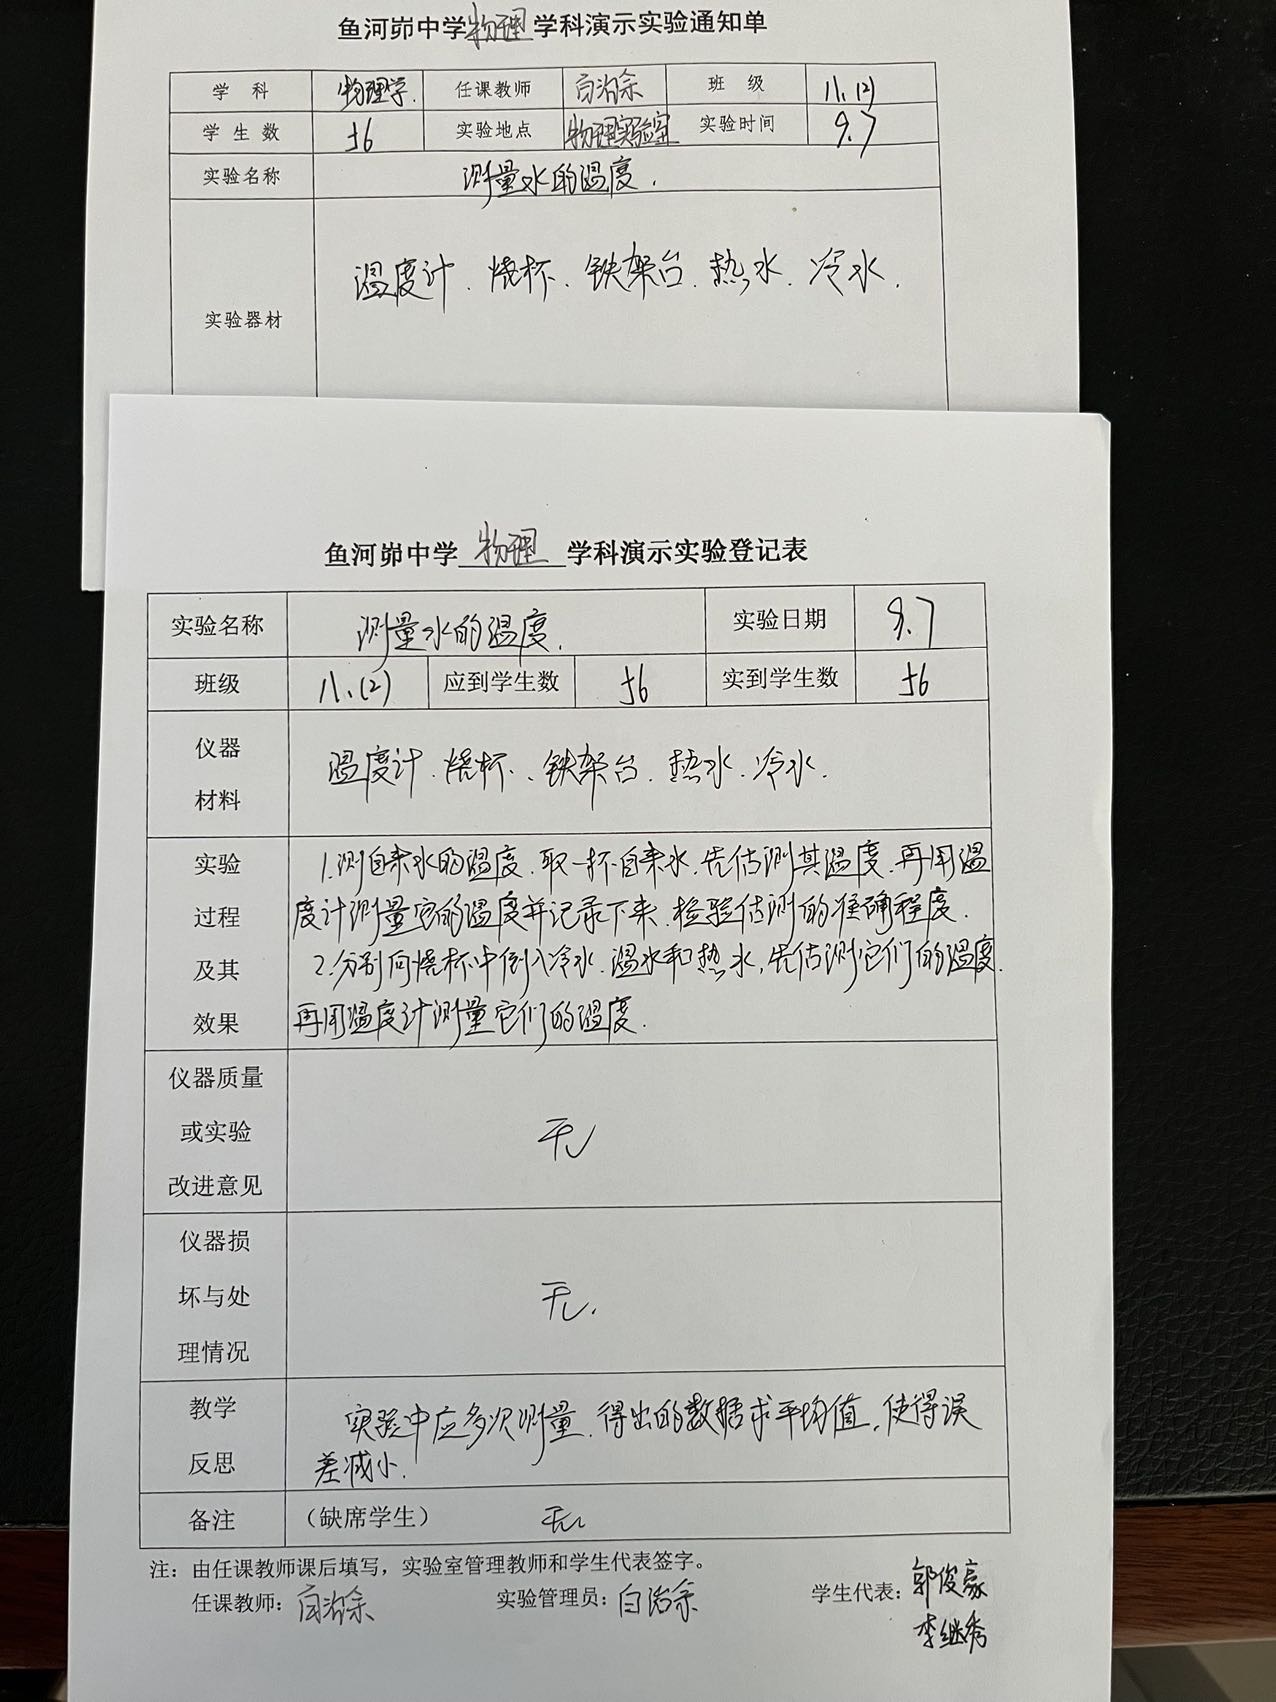 鱼河峁中学物理学科演示实验通知单
学 科 物理学. 任课教师 白治余 班 级 八.(2)
学 生 数 56 实验地点 物理实验室 实验时间 9.7
实验名称 测量水的温度.
实验器材 温度计.烧杯、铁架台.热水.冷水.
鱼河峁中学 物理 学科演示实验登记表
实验名称 测量水的温度. 实验日期 9.7
班级 八.(2) 应到学生数 56 实到学生数 56
仪器
材料
温度计.烧杯、铁架台.热水.冷水.
实验
过程
及其
效果
1.测自来水的温度.取一杯自来水.先估测其温度.再用温
度计测量它的温度并记录下来.检验估测的准确程度.
2.分别向烧杯中倒入冷水.温水和热水,先估测它们的温度.
再用温度计测量它们的温度.
仪器质量
或实验
改进意见
无
仪器损
坏与处
理情况
无.
教学
反思
实验中应多次测量.得出的数据求平均值,使得误
差减小.
备注 （缺席学生） 无
注：由任课教师课后填写，实验室管理教师和学生代表签字。
任课教师：白治余 实验管理员：白治余 学生代表：郭俊豪
李继秀